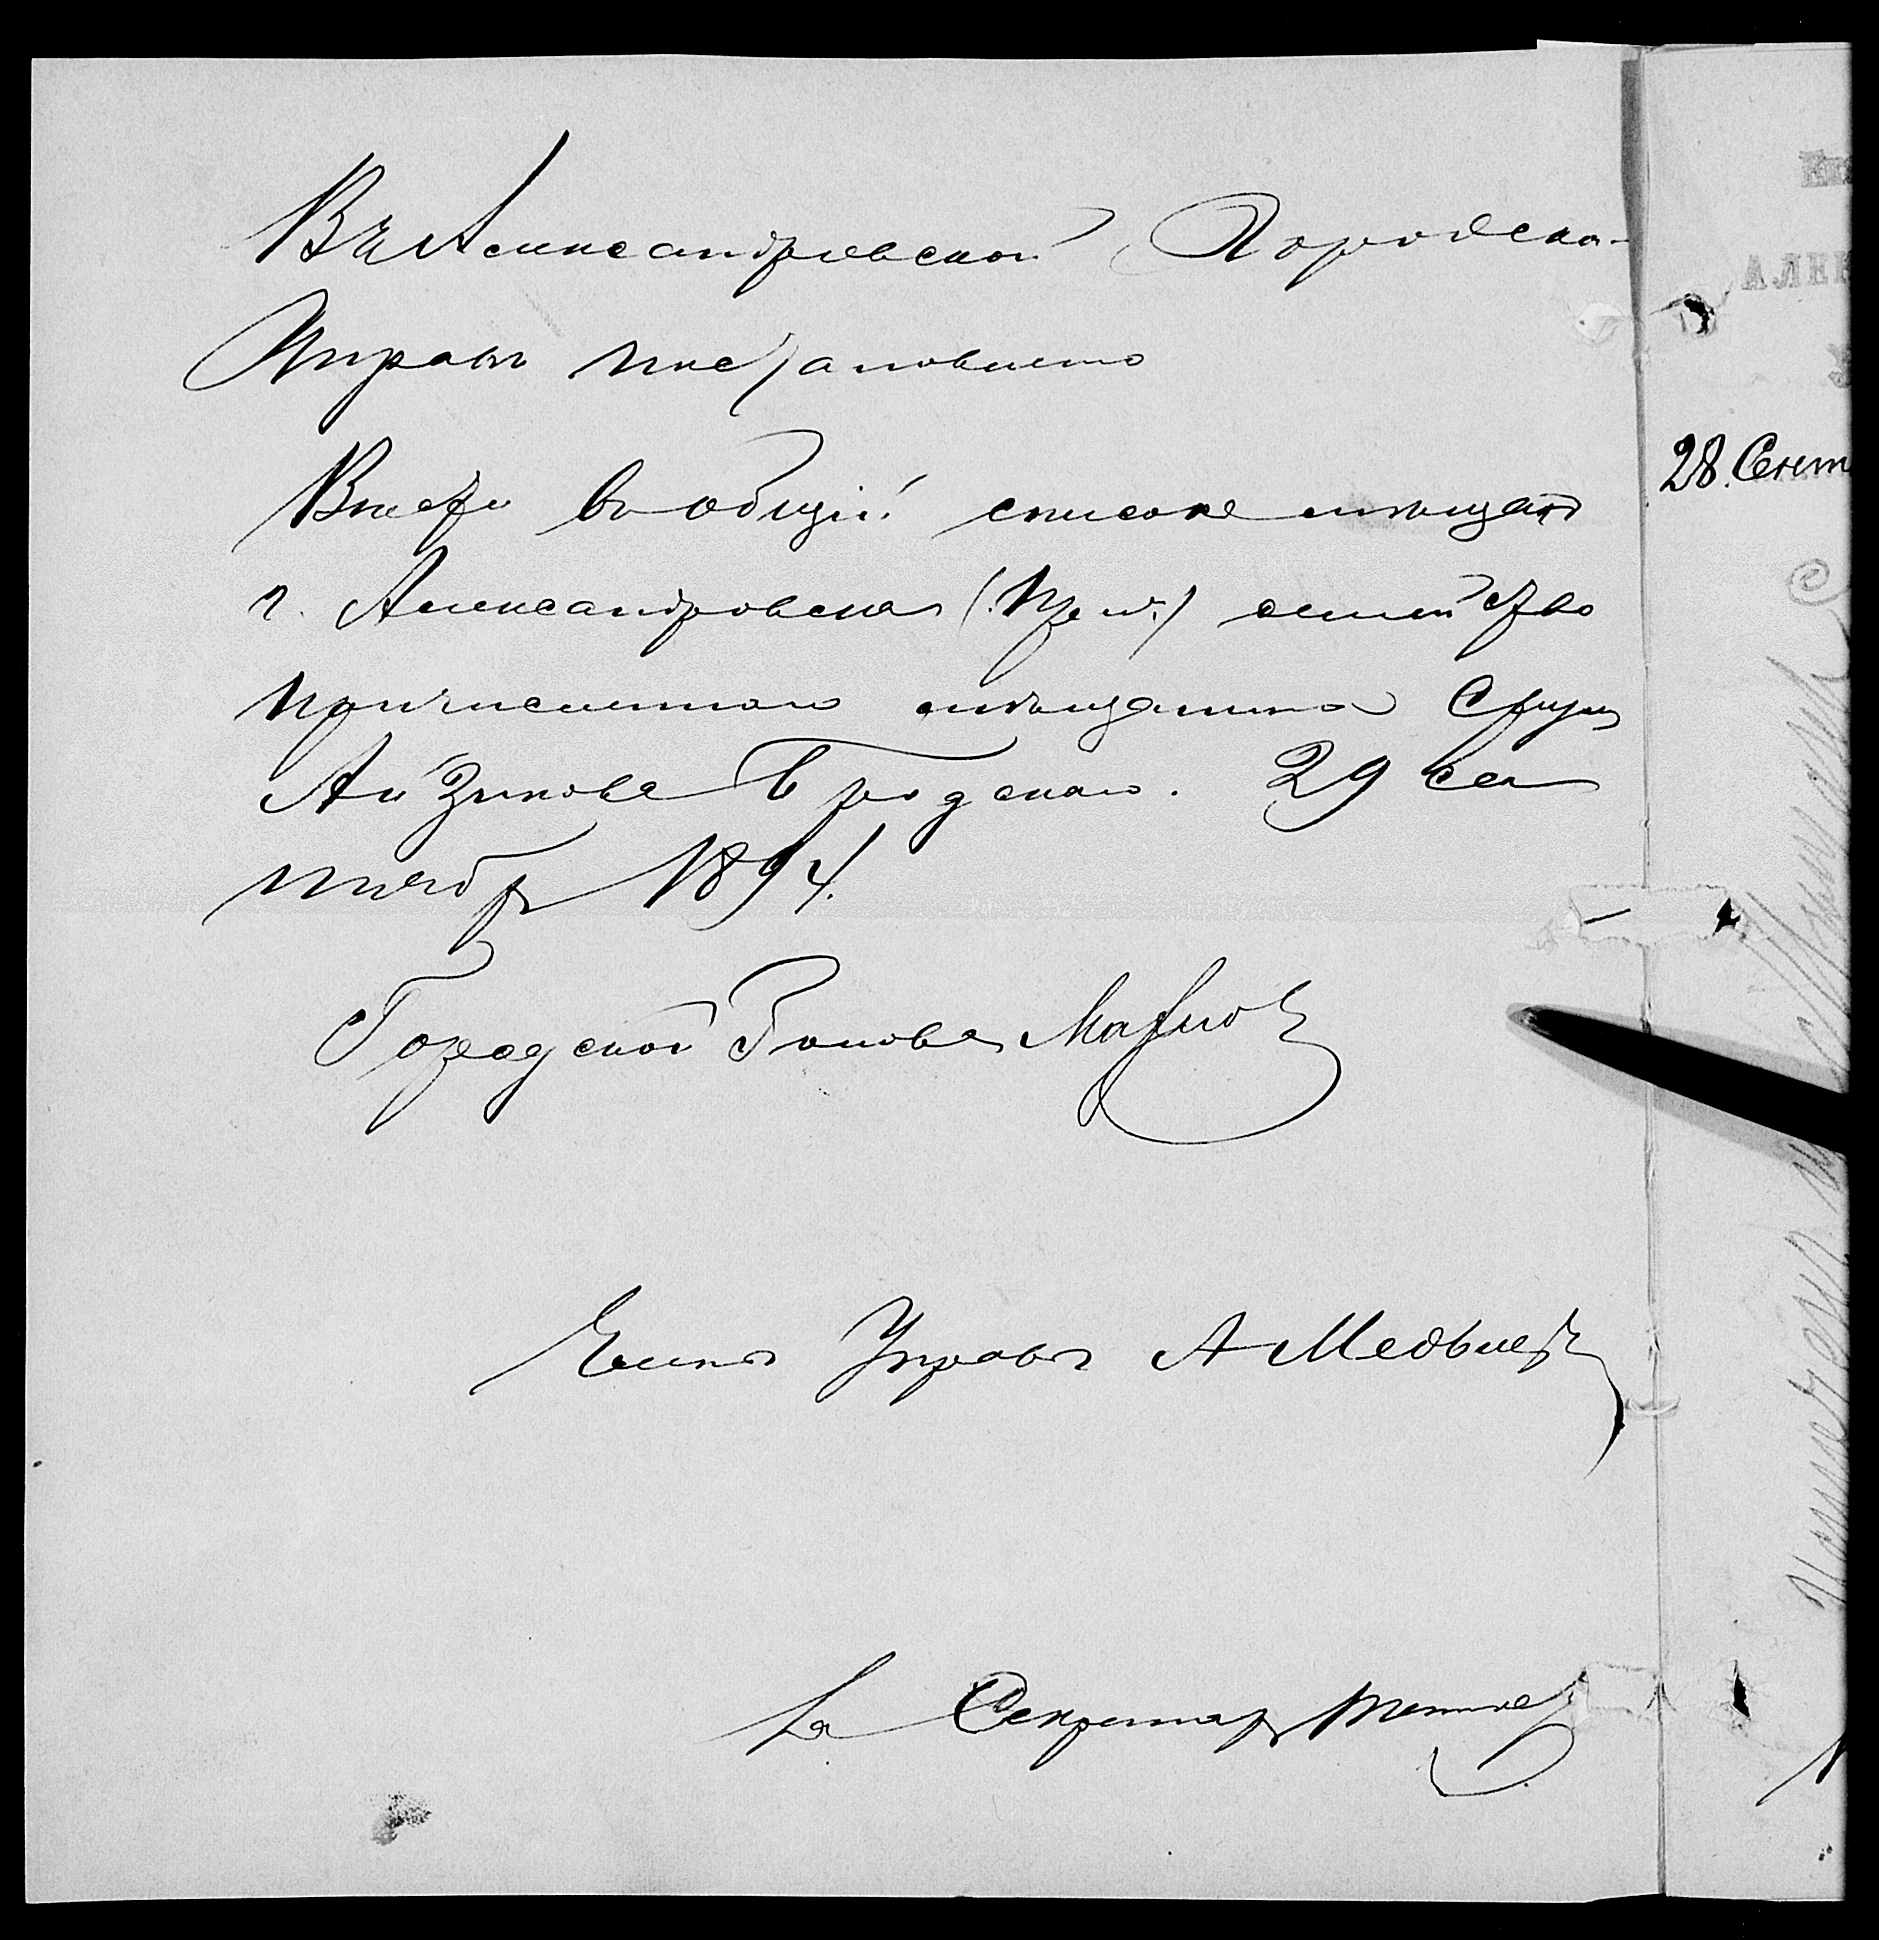 Въ Александровской Городско-
Управѣ постановлено
Внести въ общiй списокъ мѣщанъ
г. Александровска (Прил.) семейство
причисленнаго мѣщанина
Айзикова Бродскаго. 29 сен
тября 1894.
Городской Голова
Членъ Управы А Медвѣдевъ
За Секретаря
28 Сент